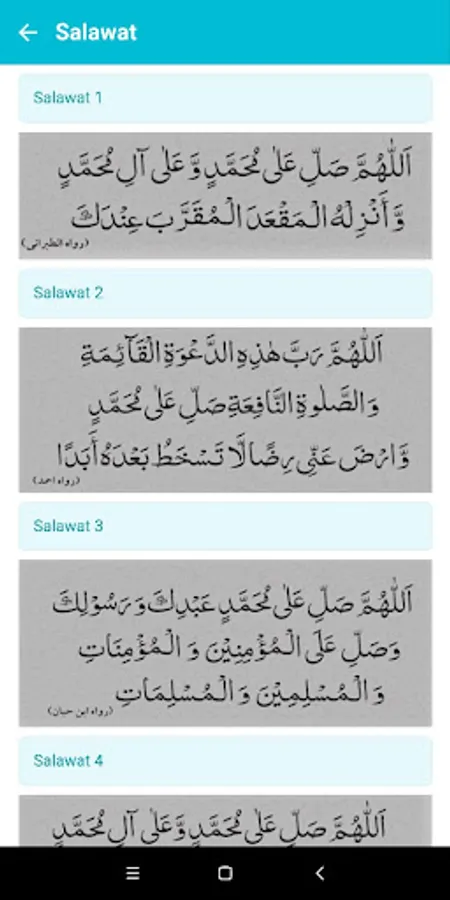 Salawat
Salawat 1
اَللّٰهُمَّ صَلِّ عَلٰى مُحَمَّدٍ وَّ عَلٰى آلِ مُحَمَّدٍ
وَّ أَنْزِلْهُ الْمَقْعَدَ الْمُقَرَّبَ عِنْدَكَ
(رواه الطبرانى)
Salawat 2
اَللّٰهُمَّ رَبَّ هٰذِهِ الدَّعْوَةِ الْقَآئِمَةِ
وَالصَّلٰوةِ النَّافِعَةِ صَلِّ عَلٰى مُحَمَّدٍ
وَّارْضَ عَنِّى رِضًا لَّا تَسْخَطُ بَعْدَهُ أَبَدًا
(رواه احمد)
Salawat 3
اَللّٰهُمَّ صَلِّ عَلٰى مُحَمَّدٍ عَبْدِكَ وَ رَسُوْلِكَ
وَصَلِّ عَلَى الْمُؤْمِنِيْنَ وَ الْمُؤْمِنَاتِ
وَ الْمُسْلِمِيْنَ وَ الْمُسْلِمَاتِ
(رواه ابن حبان)
Salawat 4
اَللّٰهُمَّ صَلِّ عَلٰى مُحَمَّدٍ وَّ عَلٰى آلِ مُحَمَّدٍ